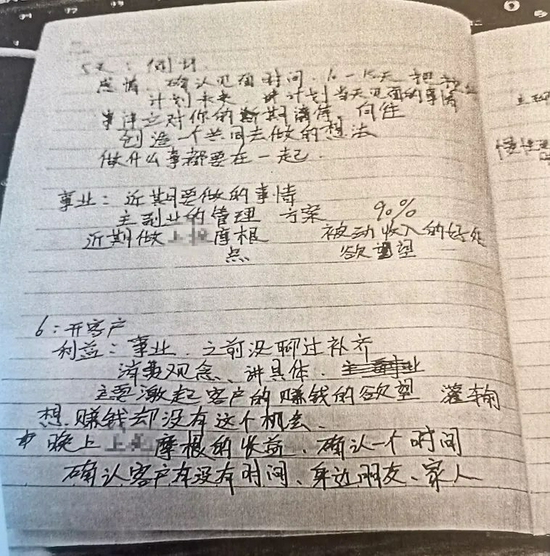 5天：
感情、确认见面时间、10-15天
计划未来 讲计划当天见面的事情
事注立对你的
创造一个共同去做的想法
做什么事都要在一起.
事业：近期要做的事情
主副业的管理 方案 90%
近期做 摩根 被动收入的好处
点 欲望
6：开客户
利益：事业、之前没聊过补齐
消费观念、讲具体、
主要激起客户的赚钱的欲望 灌输
想赚钱却没有这个机会.
晚上 摩根的收益、确认一个时间
确认客户有没有时间、身边朋友、家人